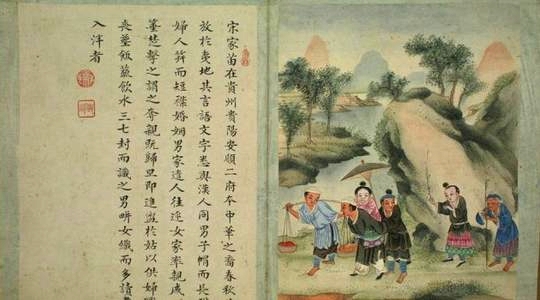 宋家苗在貴州貴陽安順二府本中華之裔春秋
放於夷地其言語文字悉與漢人同男子帽而長
婦人笄而短襟婚姻男家遣人往迎女家率親戚
箠楚擊之謂之奪親既歸旦即進盥於姑以供婦
喪葬飯蔬飲水三七封而識之男畊女織而多讀書
入泮者